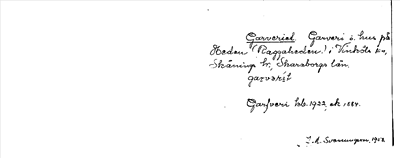 Garveriet Garveri o. hus på
Heden (Raggaheden) i Vinköls sn,
Skånings hd, Skaraborgs län.
garveriet
Garfveri hb. 1922, ek. 1884.
J. A. Svenungsson, 1952